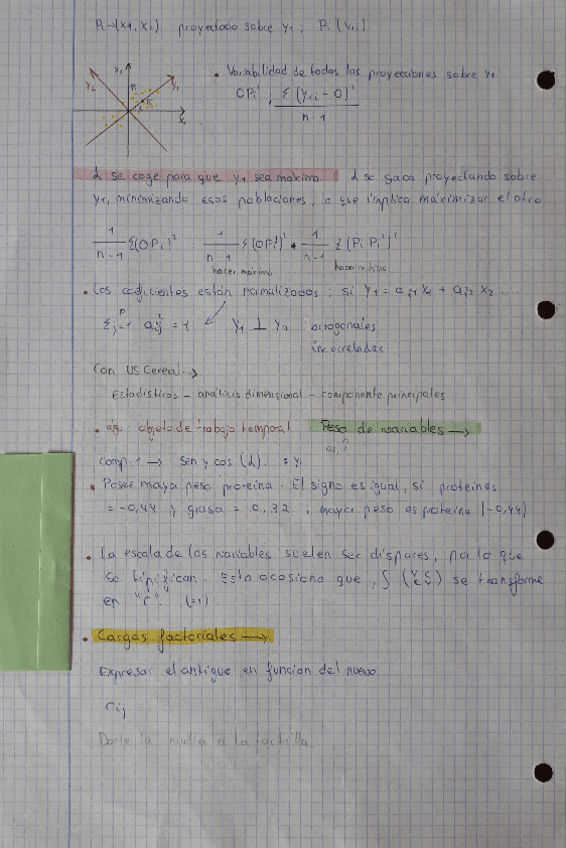 Pi→(x1, x2) proyectado sobre y1 ; Pi (y1i)
x2
y2
y1
Pi
Pi'
x1
• Variabilidad de todas las proyecciones sobre y1
OPi' ; Σ (y1i - 0)²
n-1
α se coge para que y1 sea máxima α se saca proyectando sobre
y1, minimizando esas poblaciones, lo que implica máximizar el otro
1/n-1 Σ(OPi)² 1/n-1 Σ(OPi')² + 1/n-1 Σ (Pi Pi')²
hacer máximo hacer mínimo
• Los coeficientes están normalizados ; si y1 = ai1 x1 + ai2 x2 ....
Σj=1 p aij² = 1 y1 ⊥ y2 ortogonales
incorreladas
Con US Cereal →
Estadísticos - análisis dimensional - componente principales
• objeto de trabajo temporal Peso de variables →
comp. 1 → sen y cos (α). = y1
• Posee mayor peso proteina. El signo es igual, si proteinas
= -0,44 y grasa = 0,32 ; mayor peso es proteina (-0,44)
• La escala de las variables suelen ser dispares, por lo que
se tipifican. Esto ocasiona que, se transforme
en "r". (=1)
• Cargas factoriales →
Expresar el antiguo en función del nuevo
rij
Darle la a la